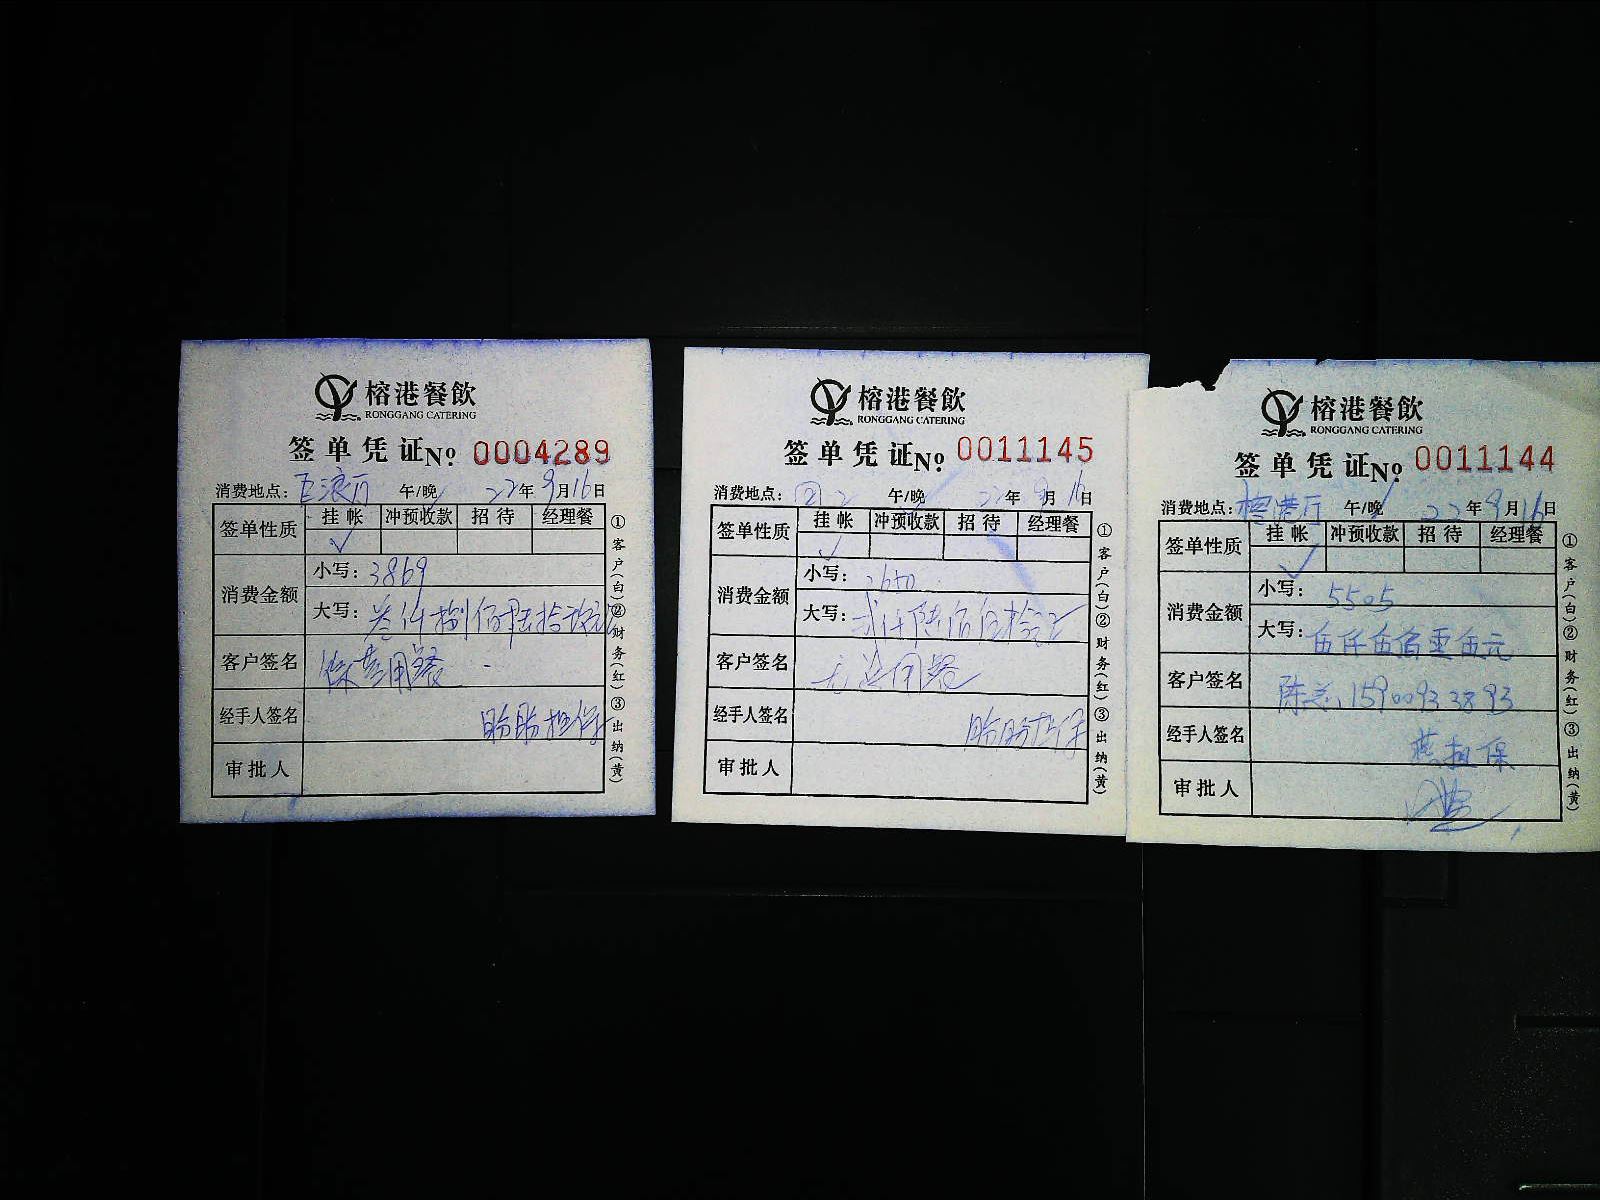 榕港餐飲
RONGGANG CATERING
签单凭证No. 0004289
消费地点: 午/晚 22年9月16日
签单性质 挂帐 冲预收款 招待 经理餐
✓
消费金额 小写: 3869
大写: 叁仟捌佰陆拾玖元
客户签名 用餐
经手人签名 盼盼担保
审批人
①客户(白)②财务(红)③出纳(黄)
榕港餐飲
RONGGANG CATERING
签单凭证No. 0011145
消费地点: 午/晚 22年9月16日
签单性质 挂帐 冲预收款 招待 经理餐
✓
消费金额 小写: 2650
大写: 贰仟陆佰伍拾元
客户签名 用餐
经手人签名 盼盼担保
审批人
①客户(白)②财务(红)③出纳(黄)
榕港餐飲
RONGGANG CATERING
签单凭证No. 0011144
消费地点: 榕港厅 午/晚 22年9月16日
签单性质 挂帐 冲预收款 招待 经理餐
✓
消费金额 小写: 5505
大写: 伍仟伍佰零伍元
客户签名 陈总 15900933893
经手人签名 燕担保
审批人
①客户(白)②财务(红)③出纳(黄)